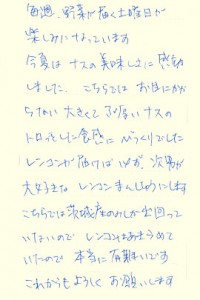 毎週、野菜が届く土曜日が
楽しみになっています
今夏は ナスの美味しさに感動
しました、こちらではお目にかか
らない大きくて ナスの
トロッとした食感に びっくりでした
レンコンが届けば 次男が
大好きな レンコンまんじゅうにします
こちらでは茨城産のみしか出回って
いないので レンコンはあきらめて
いたので 本当に有難いです
これからも よろしく お願いします